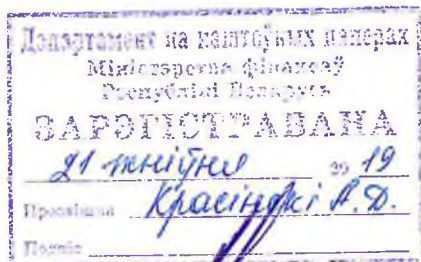 Дэпартамент па каштоўных паперах
Міністэрства фінансаў
Рэспублікі Беларусь
ЗАРЭГІСТРАВАНА
21 жніўня 20 19
Прозвішча Красінскі А.Д.
Подпіс